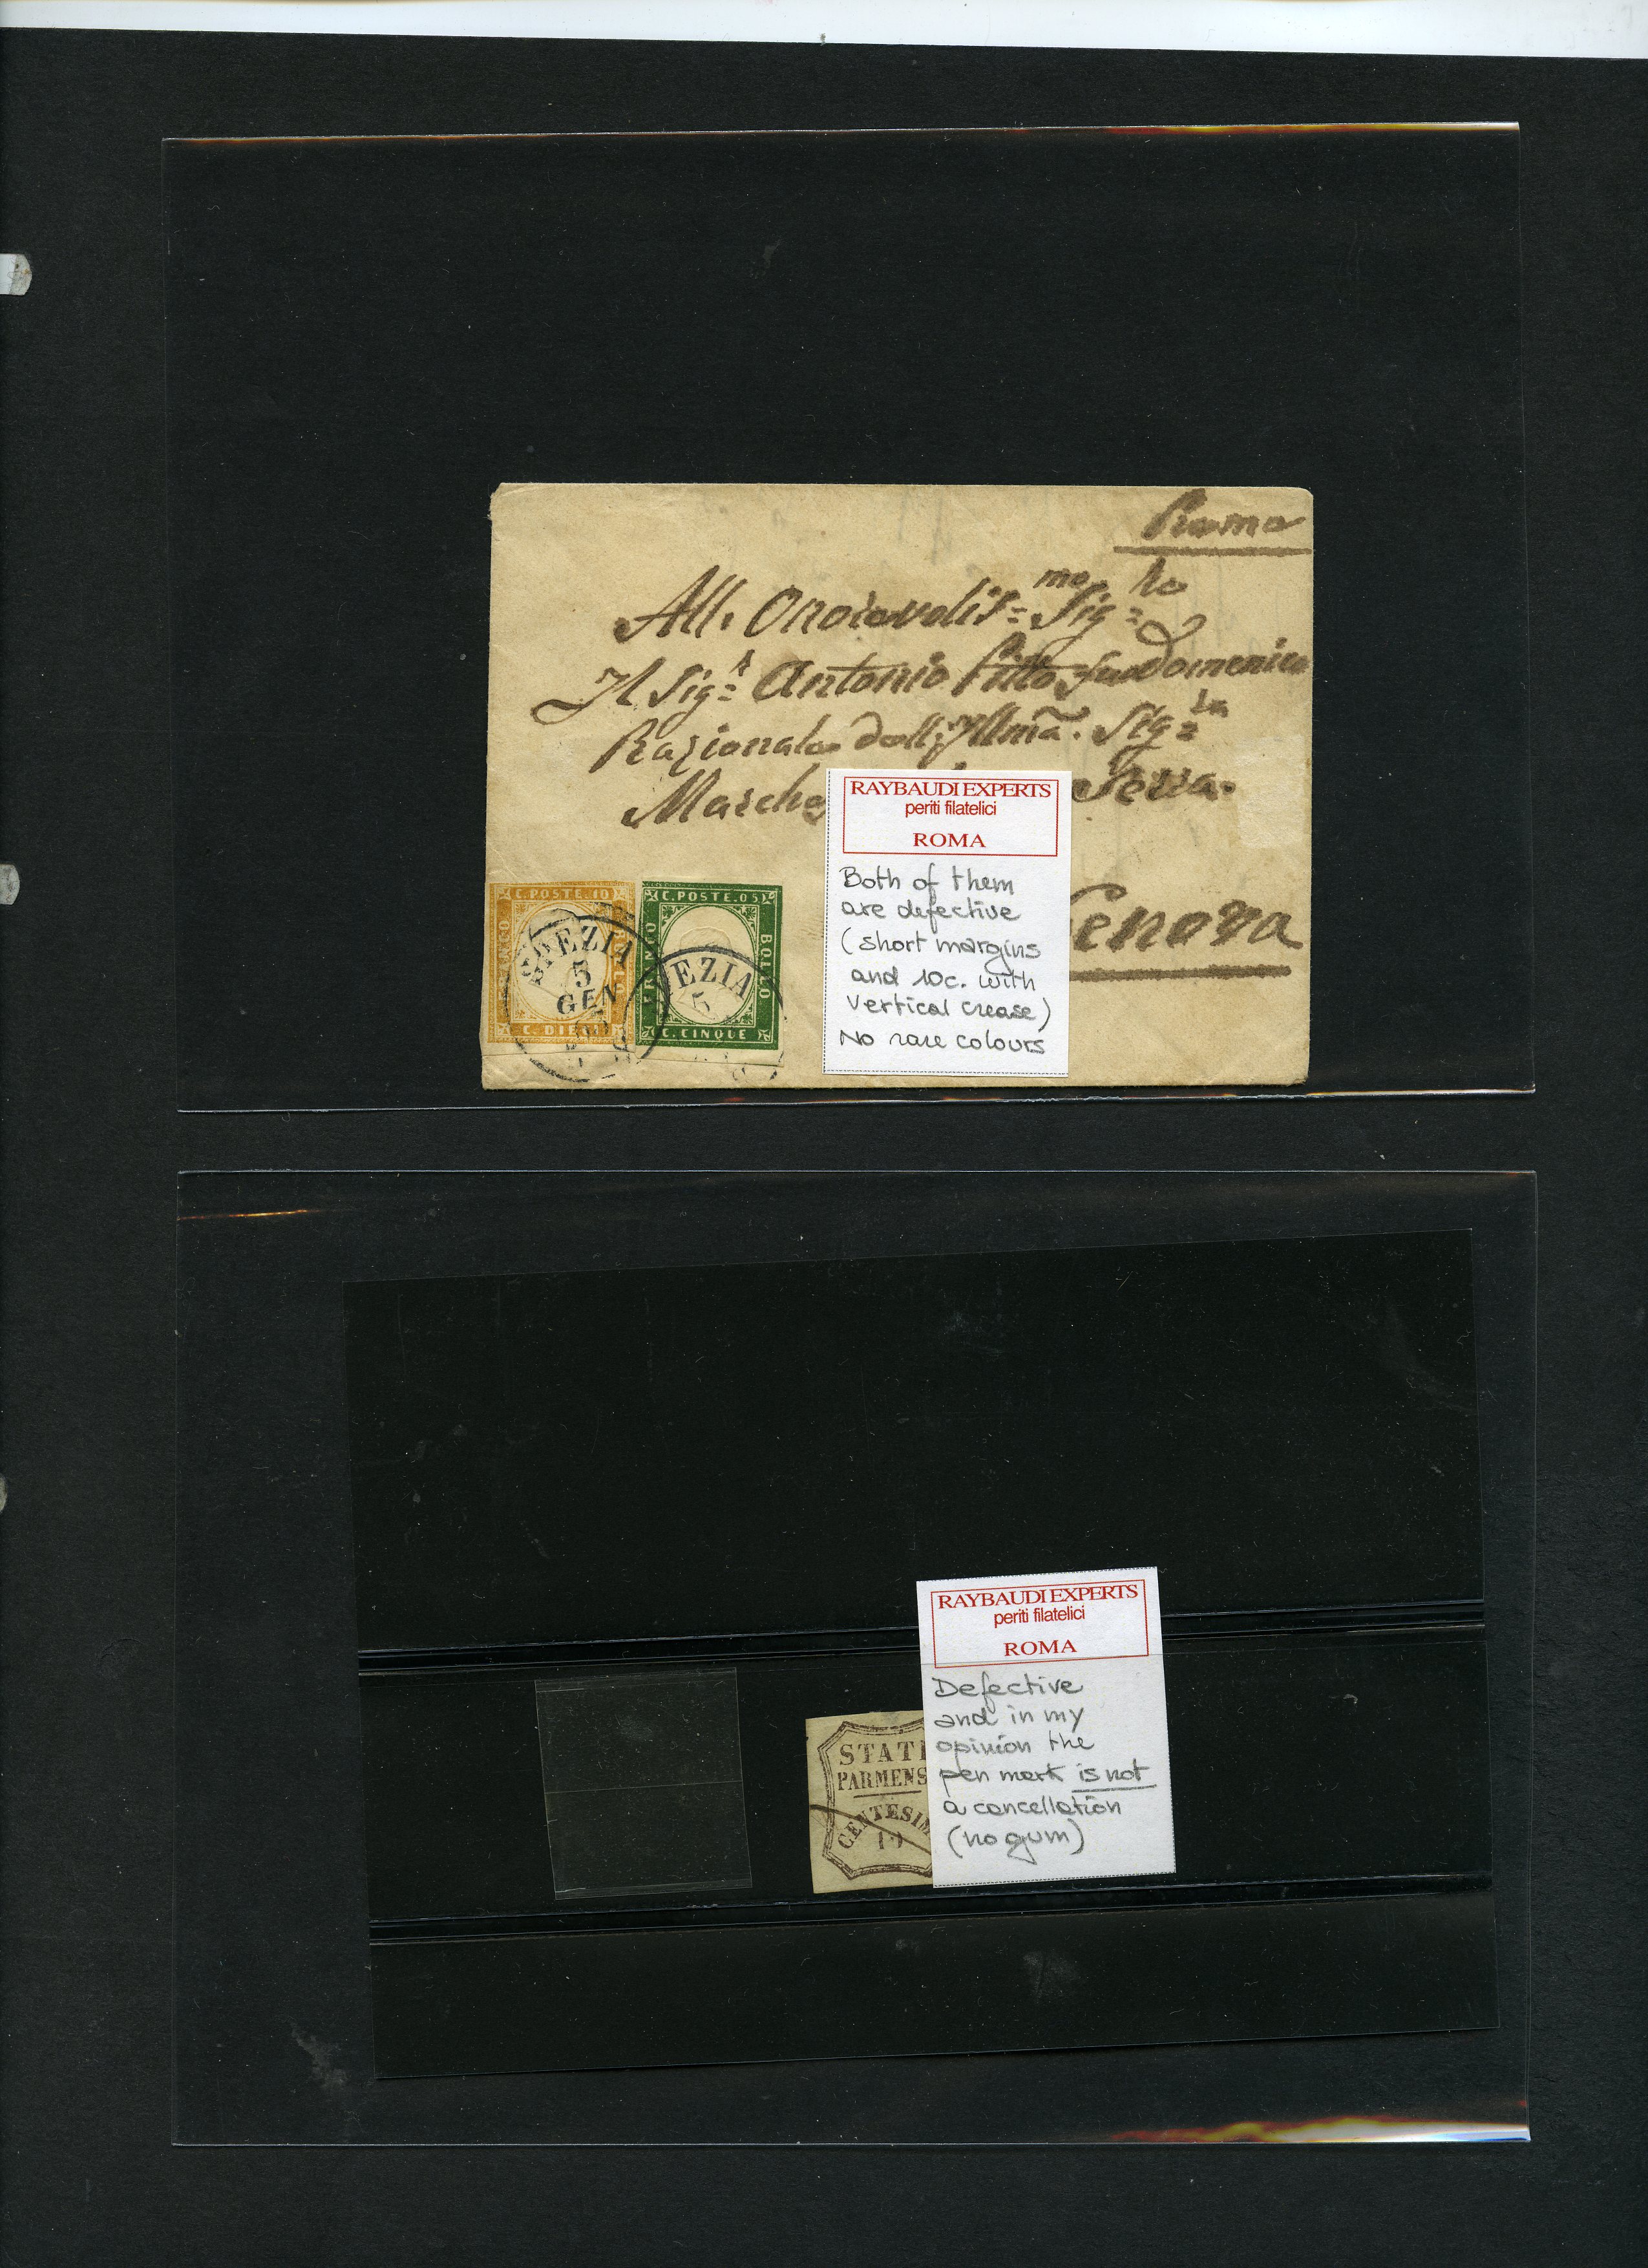 Roma
All. Onorevolis=mo Sig=
Il Sig=r Antonio Pitto fu Domenico
Razionale dell; Illmã. Sig=ra
Marche Serra.
Genova
C. POSTE. 10
C. DIECI
SPEZIA
5
GEN
C. POSTE. 05
FRANCO
BOLLO
C. CINQUE
EZIA
5
RAYBAUDI EXPERTS
periti filatelici
ROMA
Both of them
are defective
(short margins
and 10c. with
vertical crease)
No rare colours
STATI
PARMENS
CENTESIM
10
RAYBAUDI EXPERTS
periti filatelici
ROMA
Defective
and in my
opinion the
pen mark is not
a cancellation
(no gum)